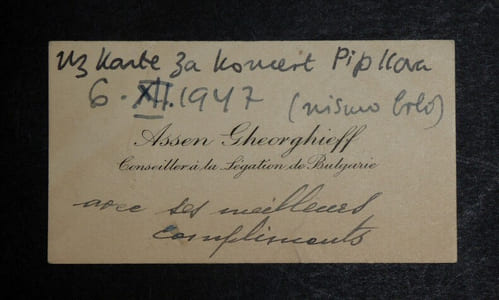 Uz karte za koncert Pipkova
6. XII. 1947 (nismo bili)
Assen Gheorghieff
Conseiller à la Légation de Bulgarie
avec ses meilleurs
compliments